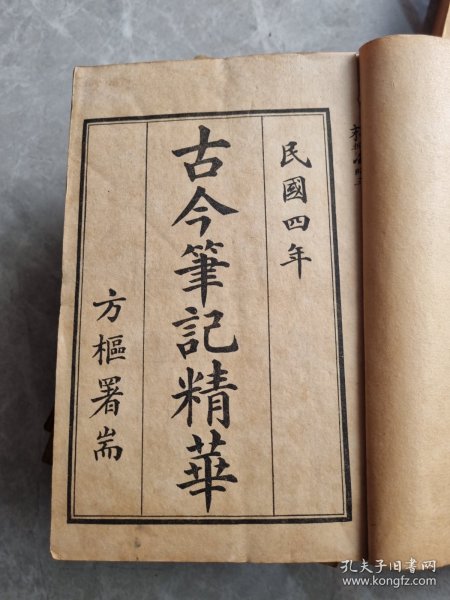 民國四年
古今筆記精華
方樞署耑
孔夫子旧书网
www.kongfz.com